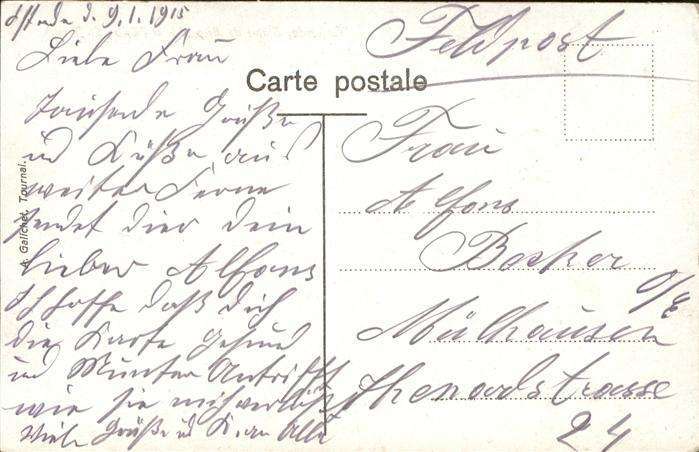 Ostende d. 9.1.1915
Liebe Frau
Tausende Grüße
und Küße aus
weiter Ferne
sendet dier dein
lieber Alfons
Ich hoffe daß dich
die Karte gesund
und Munter Antrifft
wie sie mich verläßt
Viele Grüße u K. an Alle
Feldpost
Carte postale
Frau
Alfons
Bocher
Mülhausen
o/E
Thenardstrasse
24
Galichet, Tournai.